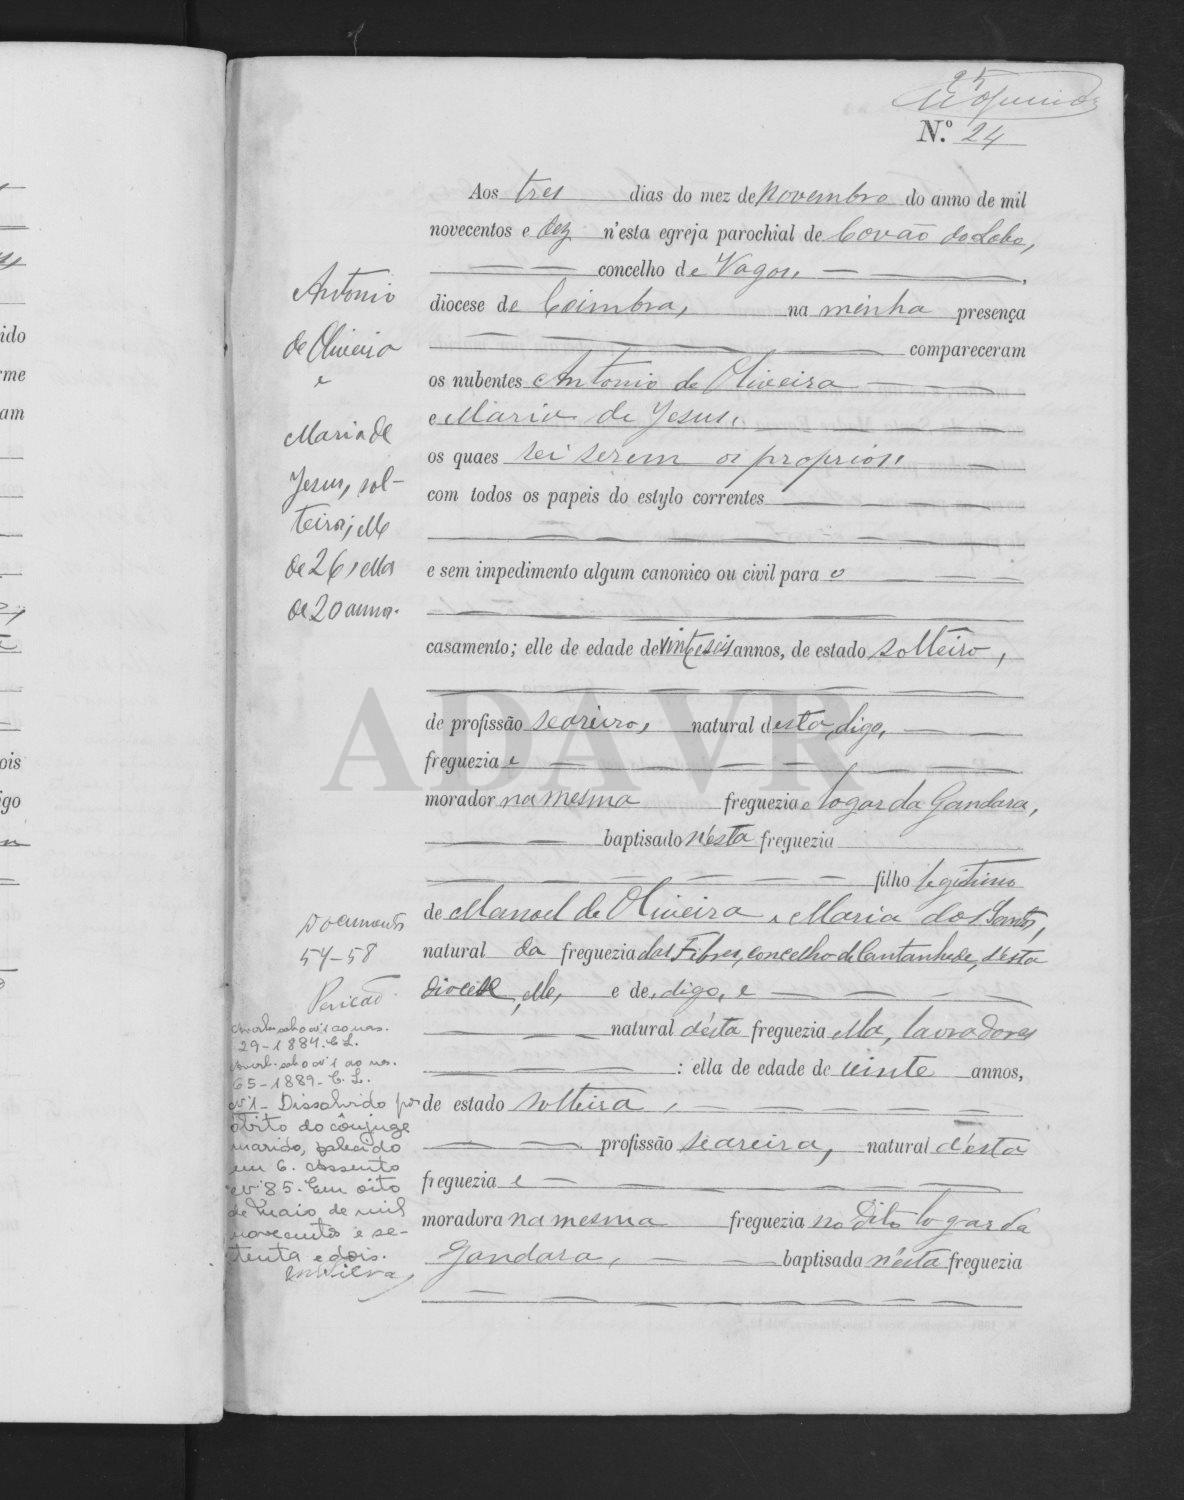 25
N.º 24
Aos tres dias do mez de Novembro do anno de mil
novecentos e dez n'esta egreja parochial de Covão do Lobo,
concelho de Vagos,
diocese de Coimbra, na minha presença
compareceram
os nubentes Antonio de Oliveira
e Maria de Jesus,
os quaes sei serem os proprios,
com todos os papeis do estylo correntes
e sem impedimento algum canonico ou civil para o
casamento; elle de edade de vinte seis annos, de estado solteiro,
de profissão seareiro, natural desta, digo,
freguezia e
morador na mesma freguezia e logar da Gandara,
baptisado n'esta freguezia
filho legitimo
de Manoel de Oliveira e Maria dos Santos,
natural da freguezia das Febres, concelho de Cantanhede, desta
diocese, elle, e de, digo, e
natural d'esta freguezia ella, lavradores
: ella de edade de vinte annos,
de estado solteira,
profissão seareira, natural d'esta
freguezia e
moradora na mesma freguezia no dito logar da
Gandara, baptisada n'esta freguezia
Antonio
de Oliveira
e
Maria de
Jesus, sol-
teiros; elle
de 26, ella
de 20 annos.
Documentos
54-58
ao nas.
29-1884. C. L.
ao nas.
65-1889- C. L.
Nº 1 - Dissolvido por
óbito do cônjuge
marido, falecido
em 6. Assento
nº 85. Em oito
de Maio de mil
novecentos e se-
tenta e dois.
Silva
ido
me
am
ois
igo
ADAVR